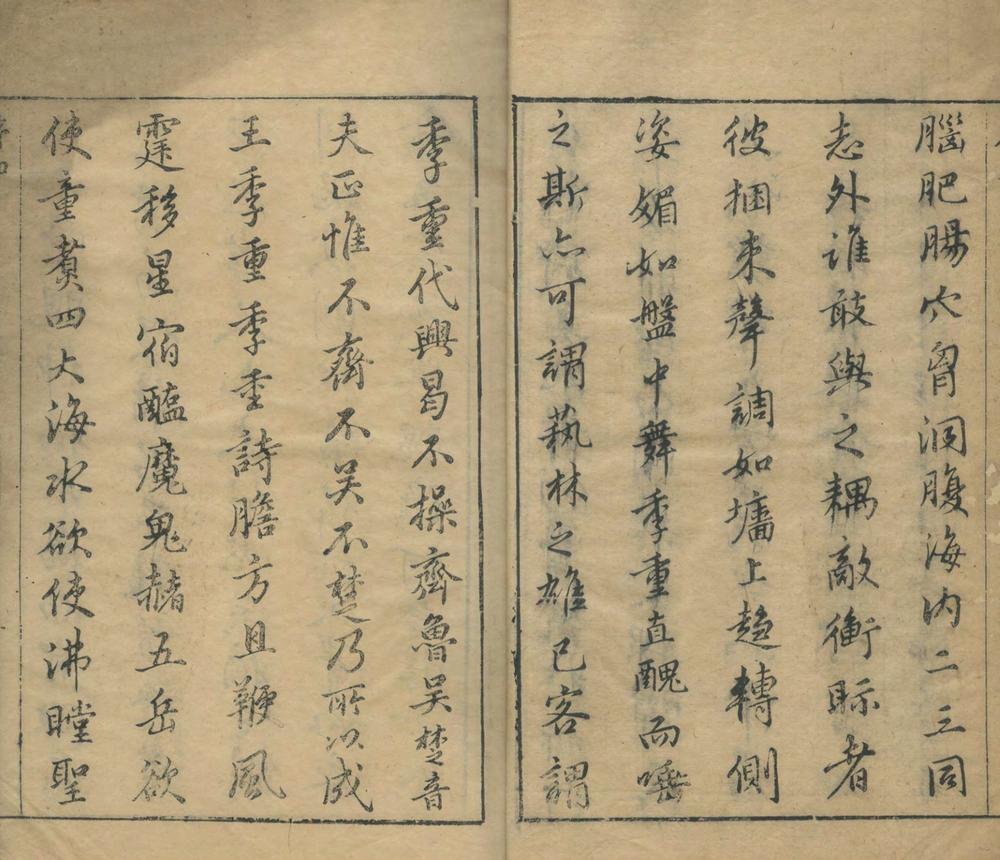 腦肥腸穴胷洞腹海內二三同
志外誰敢與之耦敵衡眎者
彼捆束聲調如墻上趨轉側
姿媚如盤中舞季重直醜而唾
之斯亦可謂蓺林之雄已客謂
季重代興曷不操齊魯吴楚音
夫正惟不齊不吴不楚乃所以成
王季重季重詩膽方且鞭風
霆移星宿醢魔鬼赭五岳欲
使童煑四大海水欲使沸瞠聖